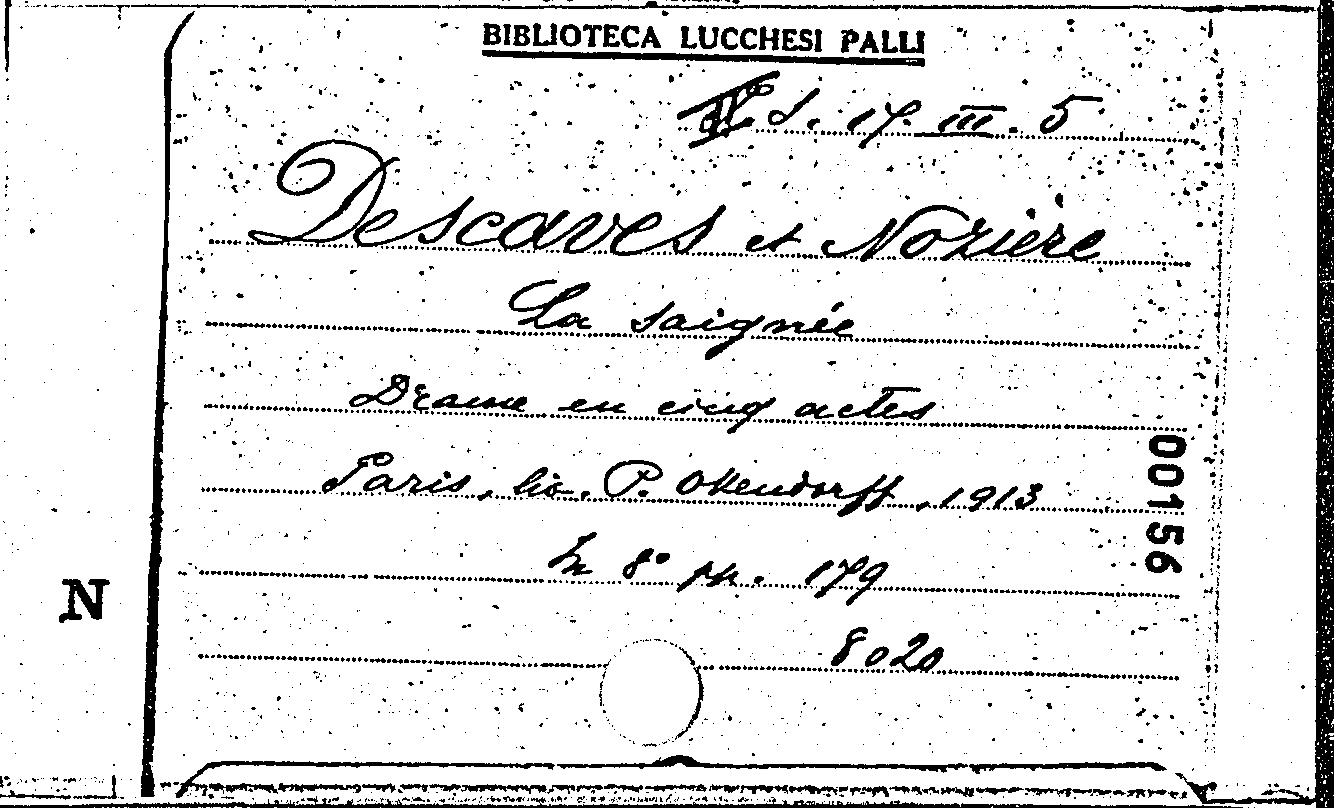 BIBLIOTECA LUCCHESI PALLI
S. 17. III. 5
Descaves et Nozière
La saignée
Drame en cinq actes
Paris, lib. P. Ollendorff, 1913
In 8° pp. 179
8020
00156
N